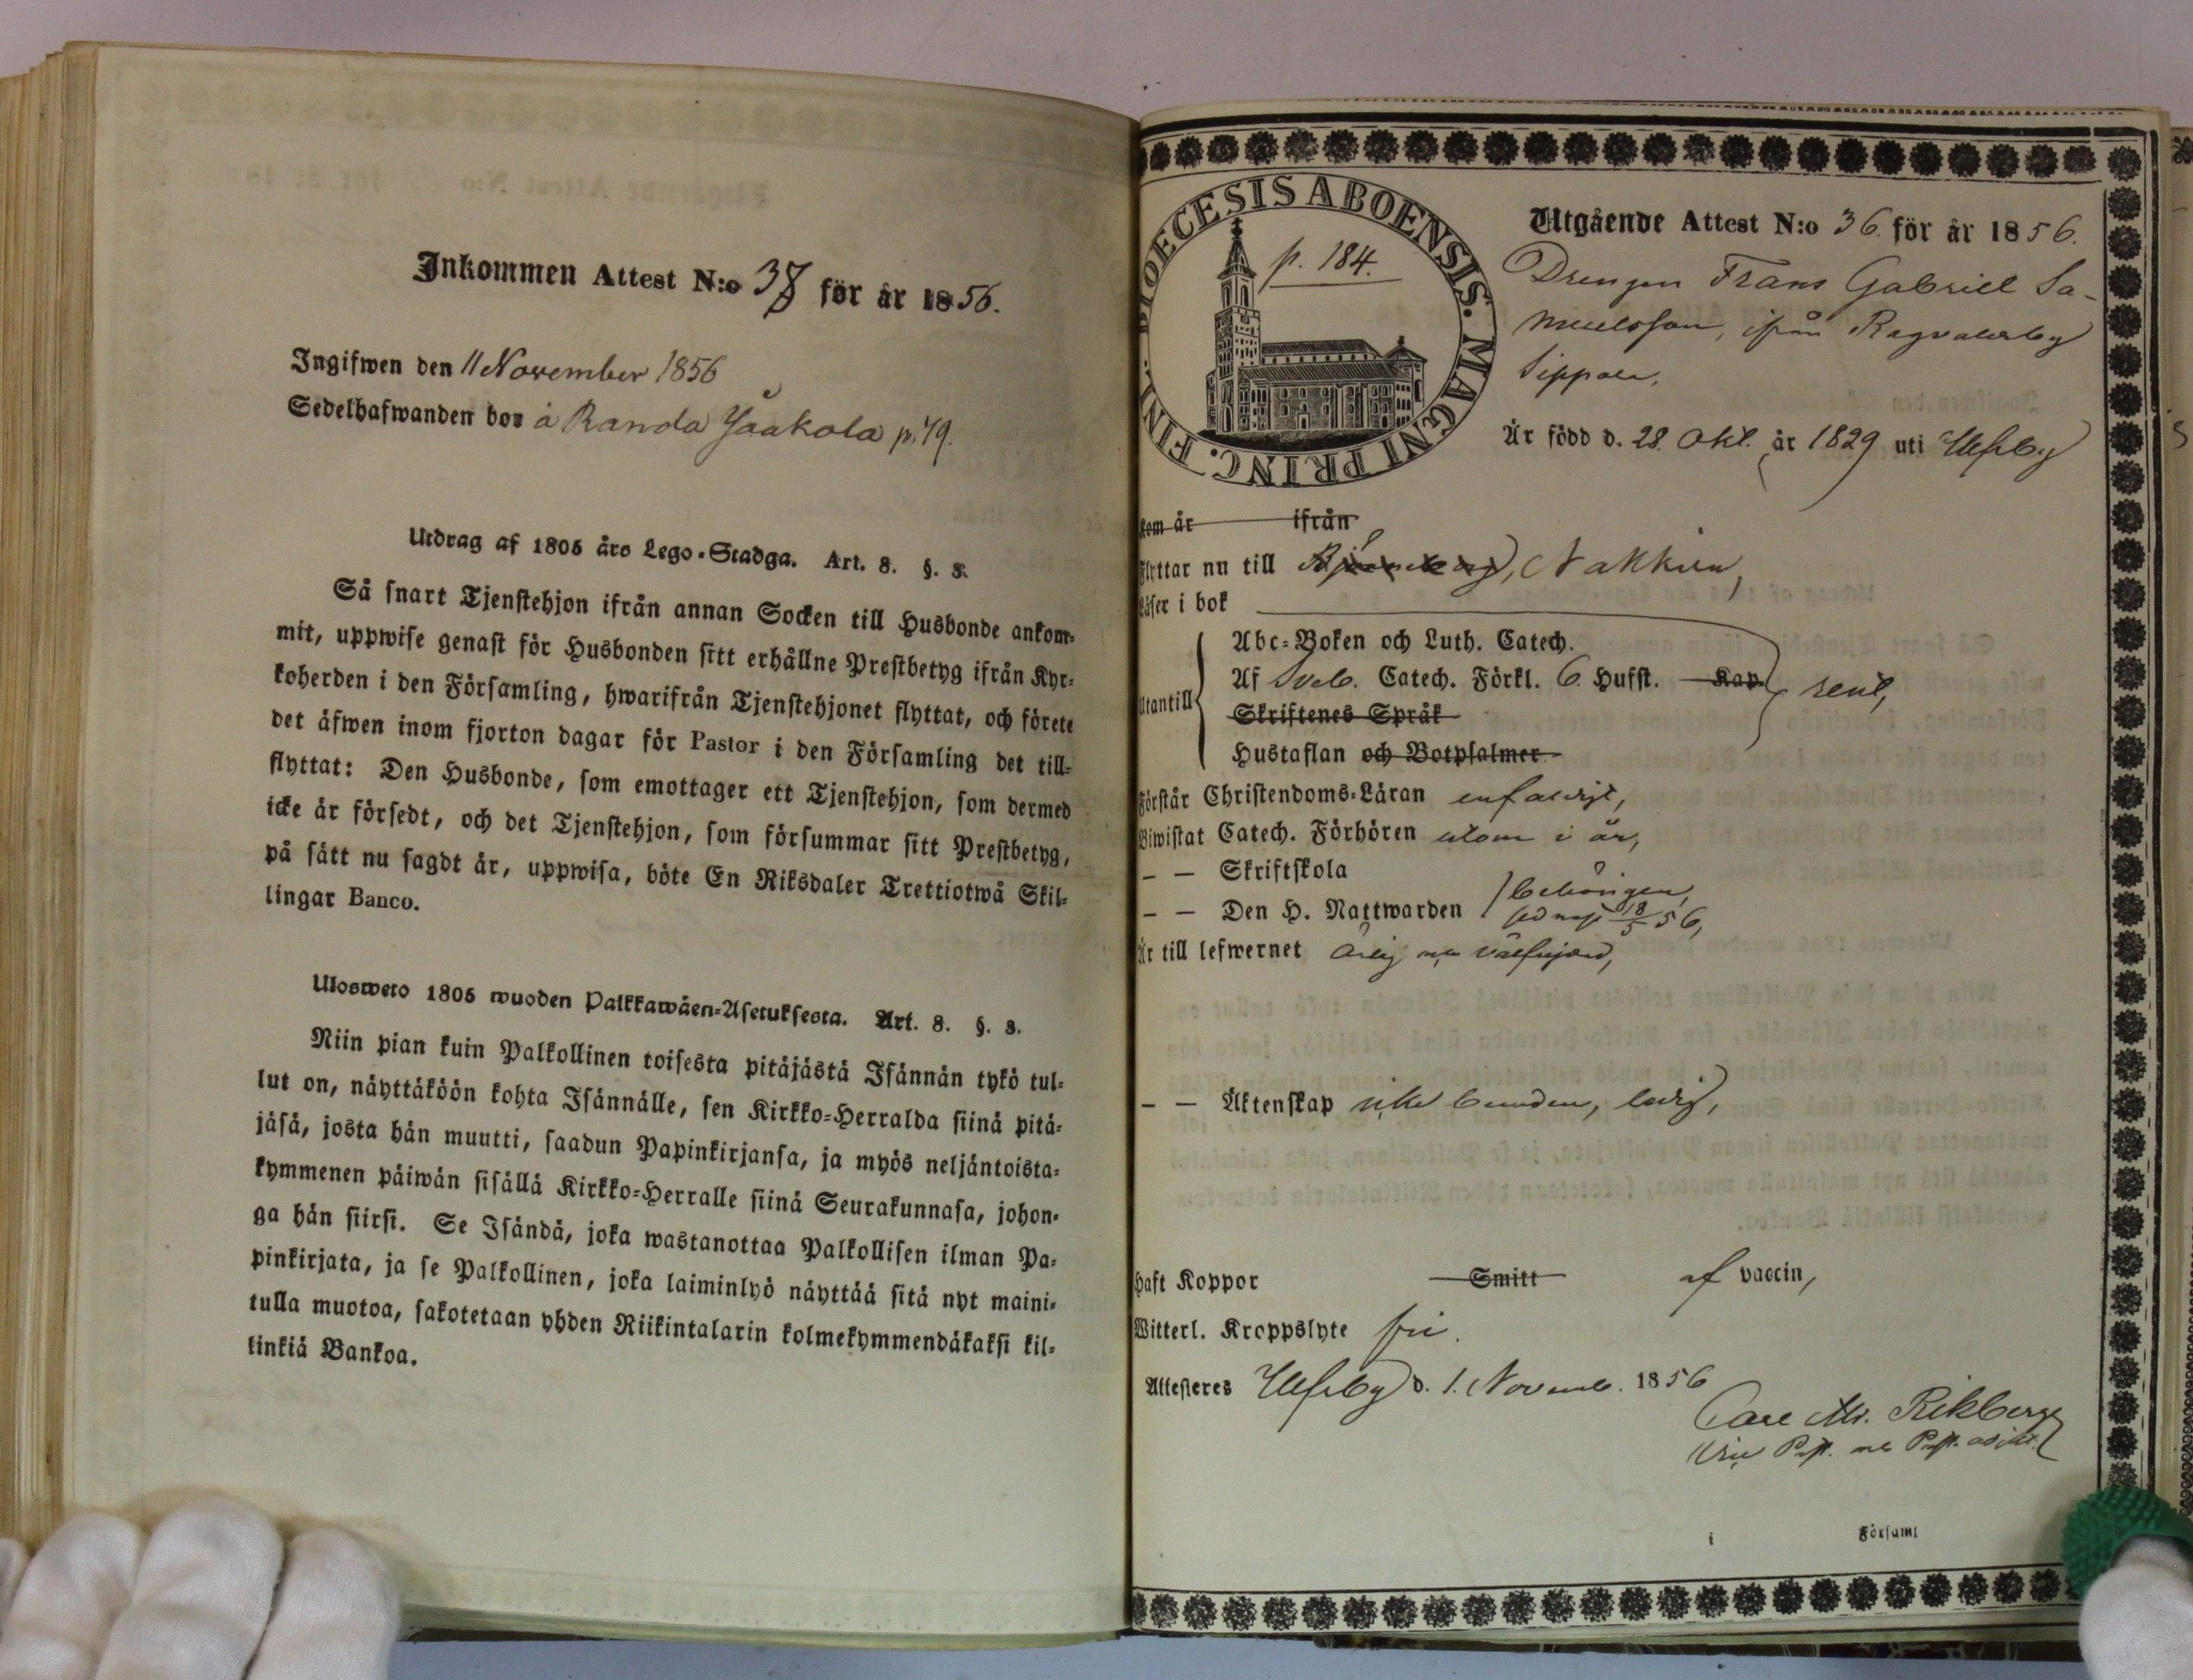 Inkommen Attest N:o 38 för år 1856.
Ingifwen den 11 November 1856
Sedelhafwanden bor å Randa Jaakola p. 79.
Utdrag af 1805 års Lego-Stadga. Art. 8. §. 3.
Så snart Tjenstehjon ifrån annan Socken till Husbonde ankom-
mit, uppwise genast för Husbonden sitt erhållne Prestbetyg ifrån Kyr-
koherden i den Församling, hwarifrån Tjenstehjonet flyttat, och förete
det äfwen inom fjorton dagar för Pastor i den Församling det till-
flyttat: Den Husbonde, som emottager ett Tjenstehjon, som dermed
icke är försedt, och det Tjenstehjon, som försummar sitt Prestbetyg,
på sätt nu sagdt är, uppwisa, böte En Riksdaler Trettiotwå Skil-
lingar Banco.
Ulosweto 1805 wuoden Palkkawäen-Asetuksesta. Art. 8. §. 3.
Niin pian kuin Palkollinen toisesta pitäjästä Isännän tykö tul-
lut on, näyttäköön kohta Isännälle, sen Kirkko-Herralda siinä pitä-
jäsä, josta hän muutti, saadun Papinkirjansa, ja myös neljäntoista-
kymmenen päiwän sisällä Kirkko-Herralle siinä Seurakunnasa, johon-
ga hän siirsi. Se Isändä, joka wastanottaa Palkollisen ilman Pa-
pinkirjata, ja se Palkollinen, joka laiminlyö näyttää sitä nyt maini-
tulla muotoa, sakotetaan yhden Riikintalarin kolmekymmendäkaksi kil-
linkiä Bankoa.
DIOECESIS ABOENSIS. MAGNI PRINC. FINL.
p. 184.
Utgående Attest N:o 36. för år 1856.
Drengen Frans Gabriel Sa-
muelsson, ifrån Ragvalsby
Sippola,
Är född d. 28. Okt. år 1829 uti Ulfsby
kom år ifrån
Flyttar nu till Björneborg, Nakkila,
Läser i bok
Abc-Boken och Luth. Catech.
Utantill Af Sveb. Catech. Förkl. 6. Hufst. Kap. rent,
Skriftenes Språk
Hustaflan och Botpsalmer
Förstår Christendoms-Läran enfaldigt,
Biwistat Catech. Förhören utom i år,
– – Skriftskola
– – Den H. Nattwarden behörigen, sednast 18/5 56,
Är till lefwernet ärlig och välfrejdad,
– – Äktenskap icke bunden, ledig,
Haft Koppor Smitt af vaccin,
Witterl. Kroppslyte fri.
Attesteres Ulfsby d. 1. Novemb. 1856
Carl Mr. Rikberg
Vice Past. och Past. adjkt.
i Församl